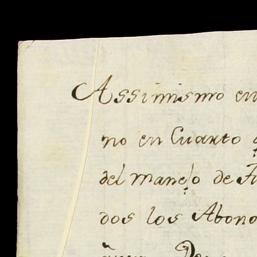 Assimismo en
no en Cuarto
del manejo de
dos los Abono